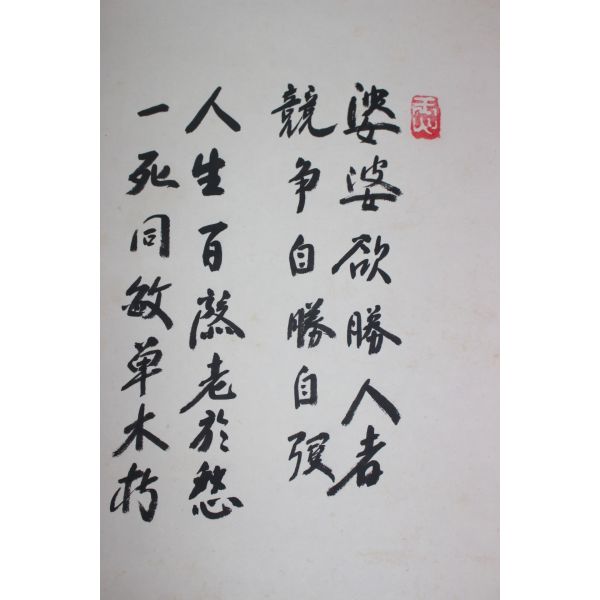 娑婆欲勝人者
競争自勝自强
人生百老於愁
一死同敏草木朽